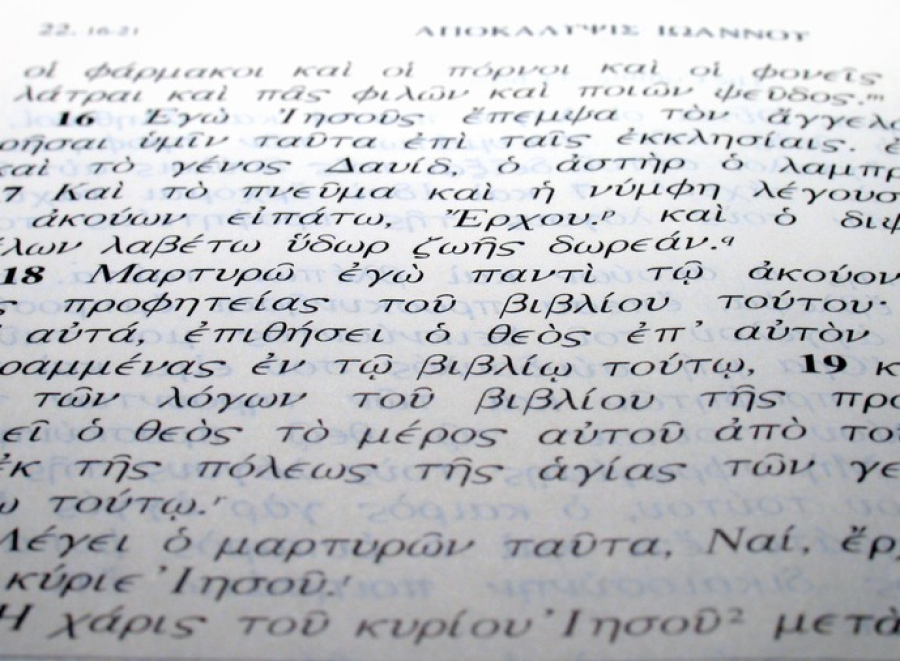 22. 16-21 ΑΠΟΚΑΛΥΨΙΣ ΙΩΑΝΝΟΥ
οἱ φάρμακοι καὶ οἱ πόρνοι καὶ οἱ φονεῖς
λάτραι καὶ πᾶς φιλῶν καὶ ποιῶν ψεῦδος.ᵐ
16 Ἐγὼ Ἰησοῦς ἔπεμψα τὸν ἄγγελο
ρῆσαι ὑμῖν ταῦτα ἐπὶ ταῖς ἐκκλησίαις. ἐ
καὶ τὸ γένος Δαυίδ, ὁ ἀστὴρ ὁ λαμπρ
7 Καὶ τὸ πνεῦμα καὶ ἡ νύμφη λέγουσ
ἀκούων εἰπάτω, Ἔρχου.ᵖ καὶ ὁ διψ
έλων λαβέτω ὕδωρ ζωῆς δωρεάν.q
18 Μαρτυρῶ ἐγὼ παντὶ τῷ ἀκούον
ς προφητείας τοῦ βιβλίου τούτου·
αὐτά, ἐπιθήσει ὁ θεὸς ἐπ’ αὐτὸν
ραμμένας ἐν τῷ βιβλίῳ τούτῳ, 19 κ
τῶν λόγων τοῦ βιβλίου τῆς προ
εῖ ὁ θεὸς τὸ μέρος αὐτοῦ ἀπὸ το
ἐκ τῆς πόλεως τῆς ἁγίας τῶν γε
ῳ τούτῳ.ʳ
Λέγει ὁ μαρτυρῶν ταῦτα, Ναί, ἔρ
κύριε Ἰησοῦ.ᵗ
Ἡ χάρις τοῦ κυρίου Ἰησοῦ² μετὰ